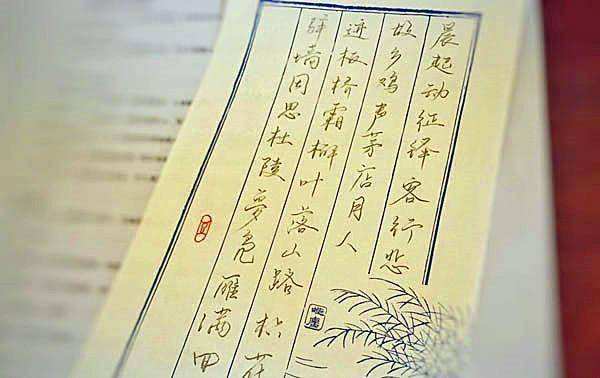 晨起动征铎客行悲
故乡鸡声茅店月人
迹板桥霜槲叶落山路枳花
驿墙因思杜陵梦凫雁满回